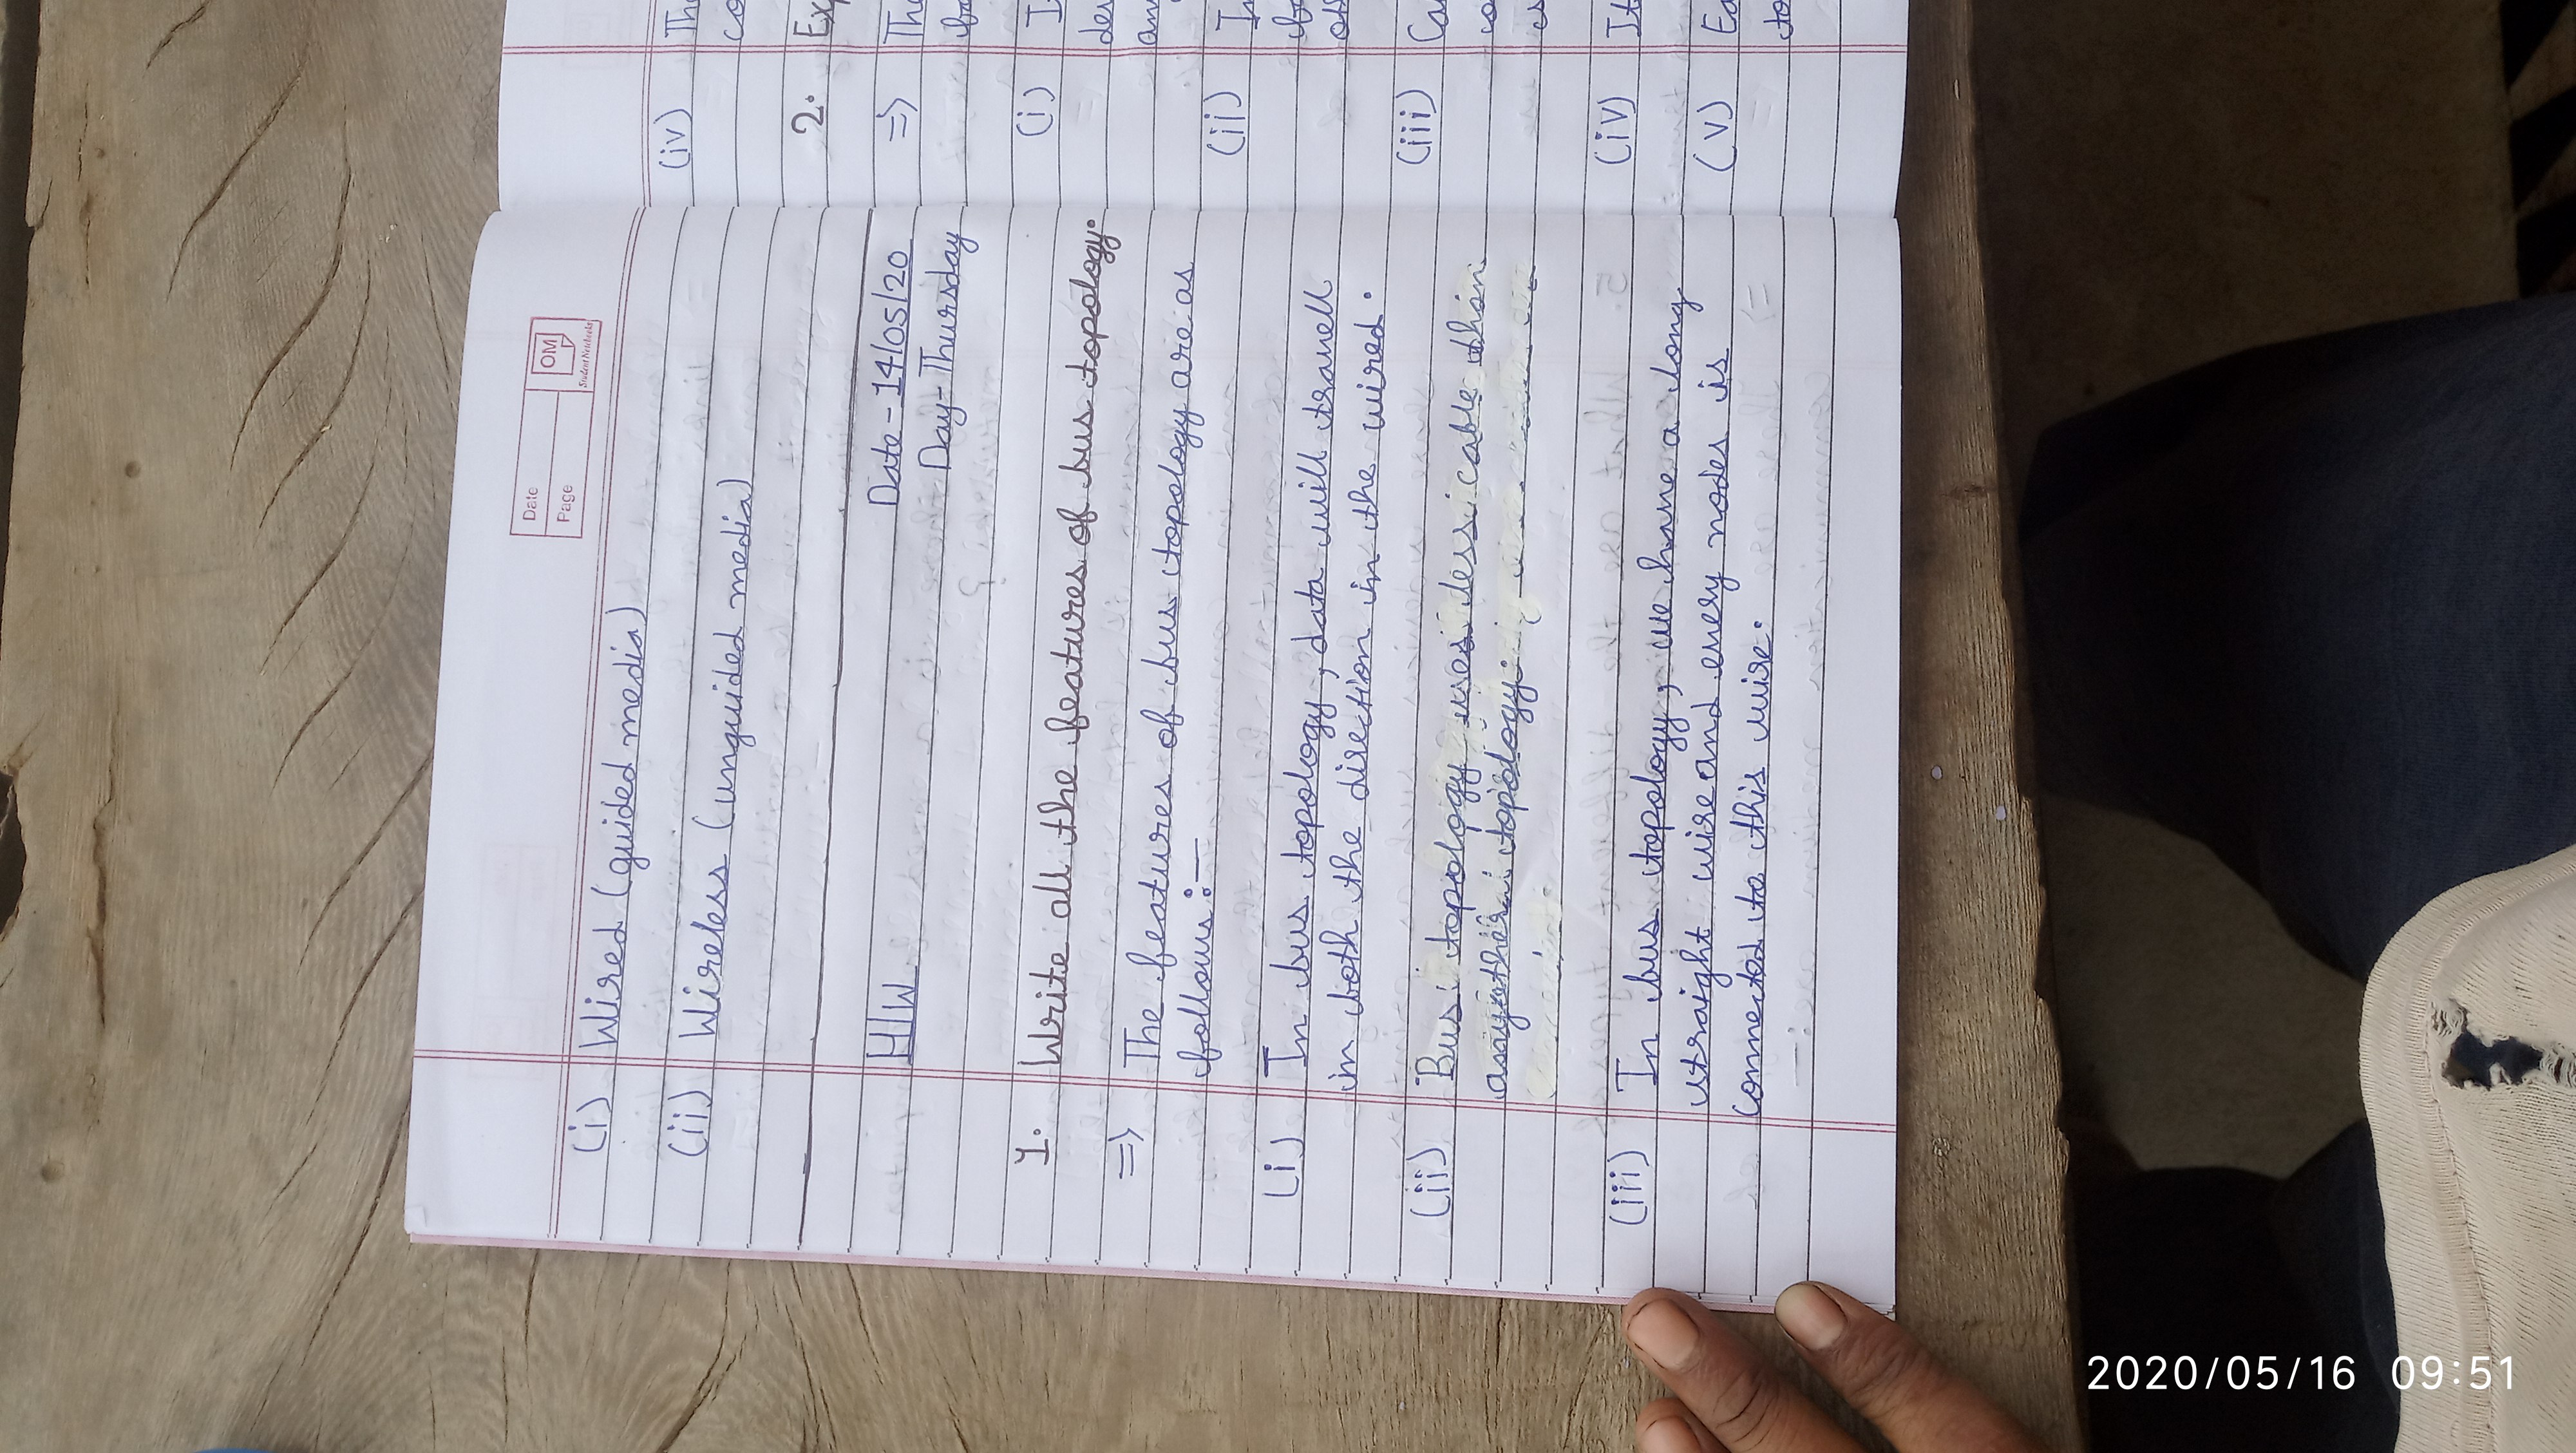 Date
Page
OM
Student Notebooks
(i) Wired (guided media)
(ii) Wireless (unguided media)
H/W Date - 14/05/20
Day - Thursday
1. Write all the features of bus topology.
=> The features of bus topology are as
follows:-
(i) In bus topology, data will travell
in both the direction in the wired.
(ii) Bus topology uses less cable than
topology.
(iii) In bus topology, we have a long
straight wire and every nodes is
connected to this wire.
(iv) The
co
2. Exp
=>
(i)
(ii)
(iii)
(iv) It
(v)
to
2020/05/16 09:51